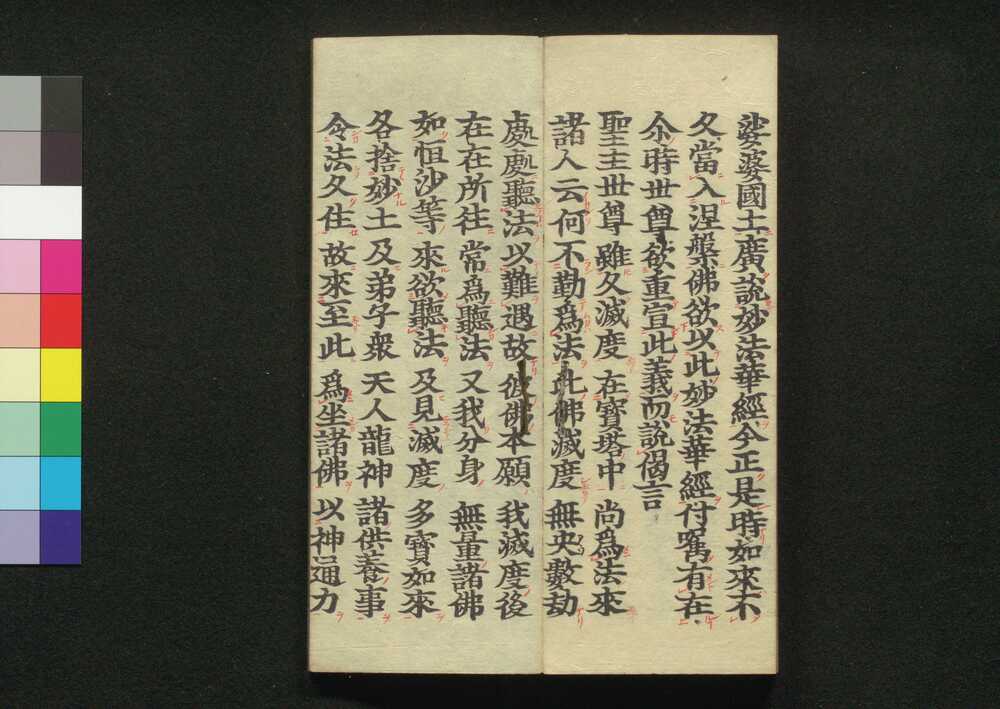 娑婆國土廣說妙法華經今正是時如來不
久當入涅槃佛欲以此妙法華經付囑有在
尒時世尊欲重宣此義而說偈言
聖主世尊 雖久滅度 在寶塔中 尚爲法來
諸人云何 不勤爲法 此佛滅度 無央數劫
處處聽法 以難遇故 彼佛本願 我滅度後
在在所往 常爲聽法 又我分身 無量諸佛
如恒沙等 來欲聽法 及見滅度 多寶如來
各捨妙土 及弟子衆 天人龍神 諸供養事
令法久住 故來至此 爲坐諸佛 以神通力